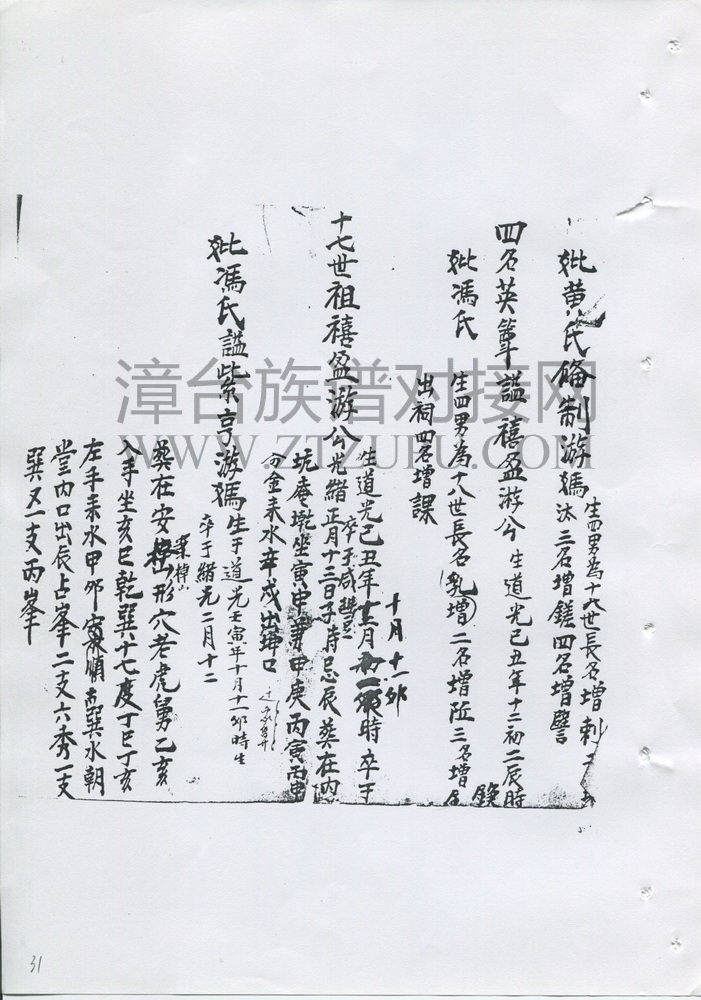 妣黄氏脩制游孺生四男為十八世長名增刺二名
汰三名增鎈四名增譬
四名英筆諡禧盈游公生道光己丑年十二初二辰時
妣馮氏生四男為十八世長名增二名增阰三名增
出祠四名增課
十七世祖禧盈游公生道光己丑年十二月初二時卒于
十月十一卯
光緒正月十三日子時忌辰葬在内
卒于咸豐
坑庵墘坐寅申兼甲庚丙寅丙申
分金耒水辛戍出坤口
妣馮氏諡紫亨游孺生于道光壬寅年十月十一卯時生
卒于緒光二月十二
葉樟山
葬在安形穴老虎舅乙亥
入手坐亥巳乾巽十七度丁巳丁亥
左手耒水甲卯順巽水朝
堂内口出辰占峯二支六秀一支
巽又一支丙峯
漳台族谱对接网
WWW.ZTZUPU.COM
31